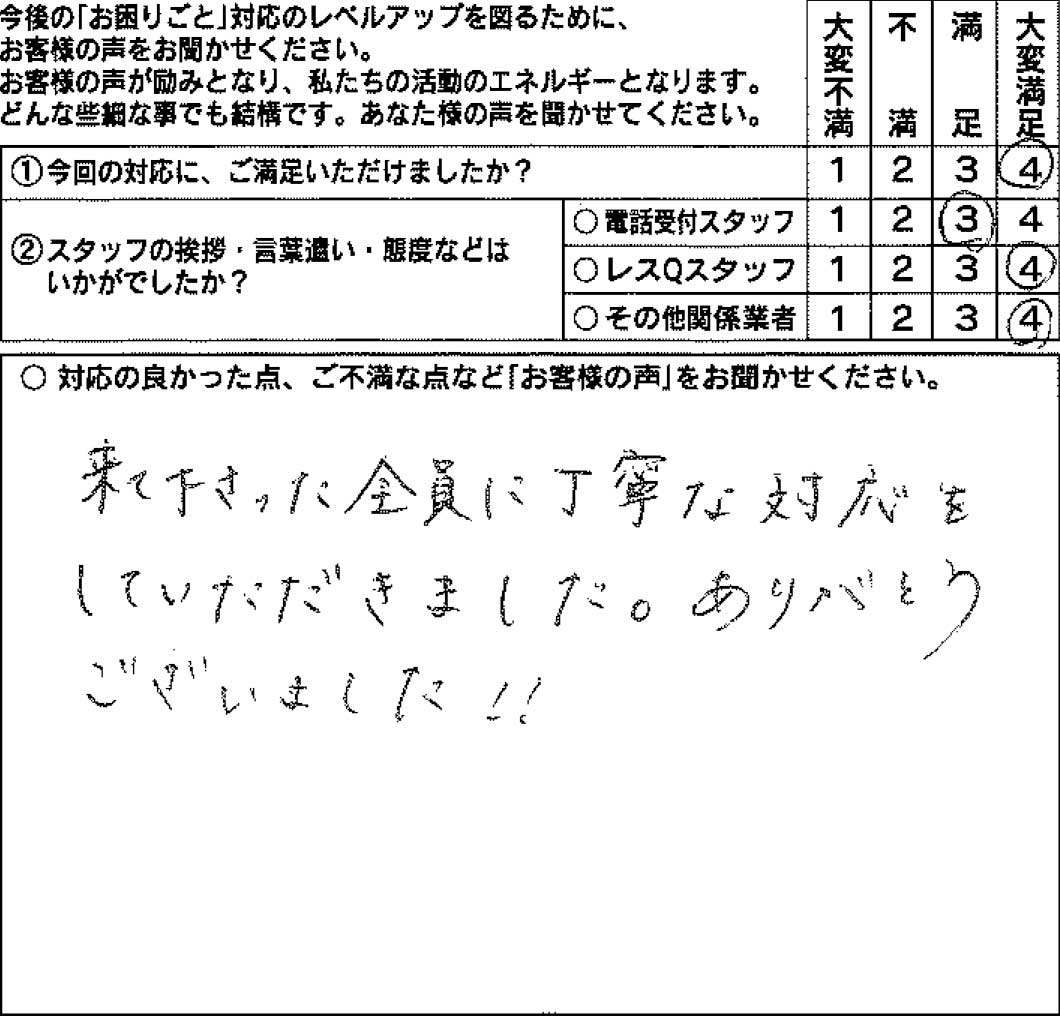 今後の「お困りごと」対応のレベルアップを図るために、
お客様の声をお聞かせください。
お客様の声が励みとなり、私たちの活動のエネルギーとなります。
どんな些細な事でも結構です。あなた様の声を聞かせてください。
大変不満 不満 満足 大変満足
①今回の対応に、ご満足いただけましたか？ 1 2 3 4
②スタッフの挨拶・言葉遣い・態度などは
いかがでしたか？
○電話受付スタッフ 1 2 3 4
○レスQスタッフ 1 2 3 4
○その他関係業者 1 2 3 4
○ 対応の良かった点、ご不満な点など「お客様の声」をお聞かせください。
来て下さった全員に丁寧な対応を
していただきました。ありがとう
ございました!!